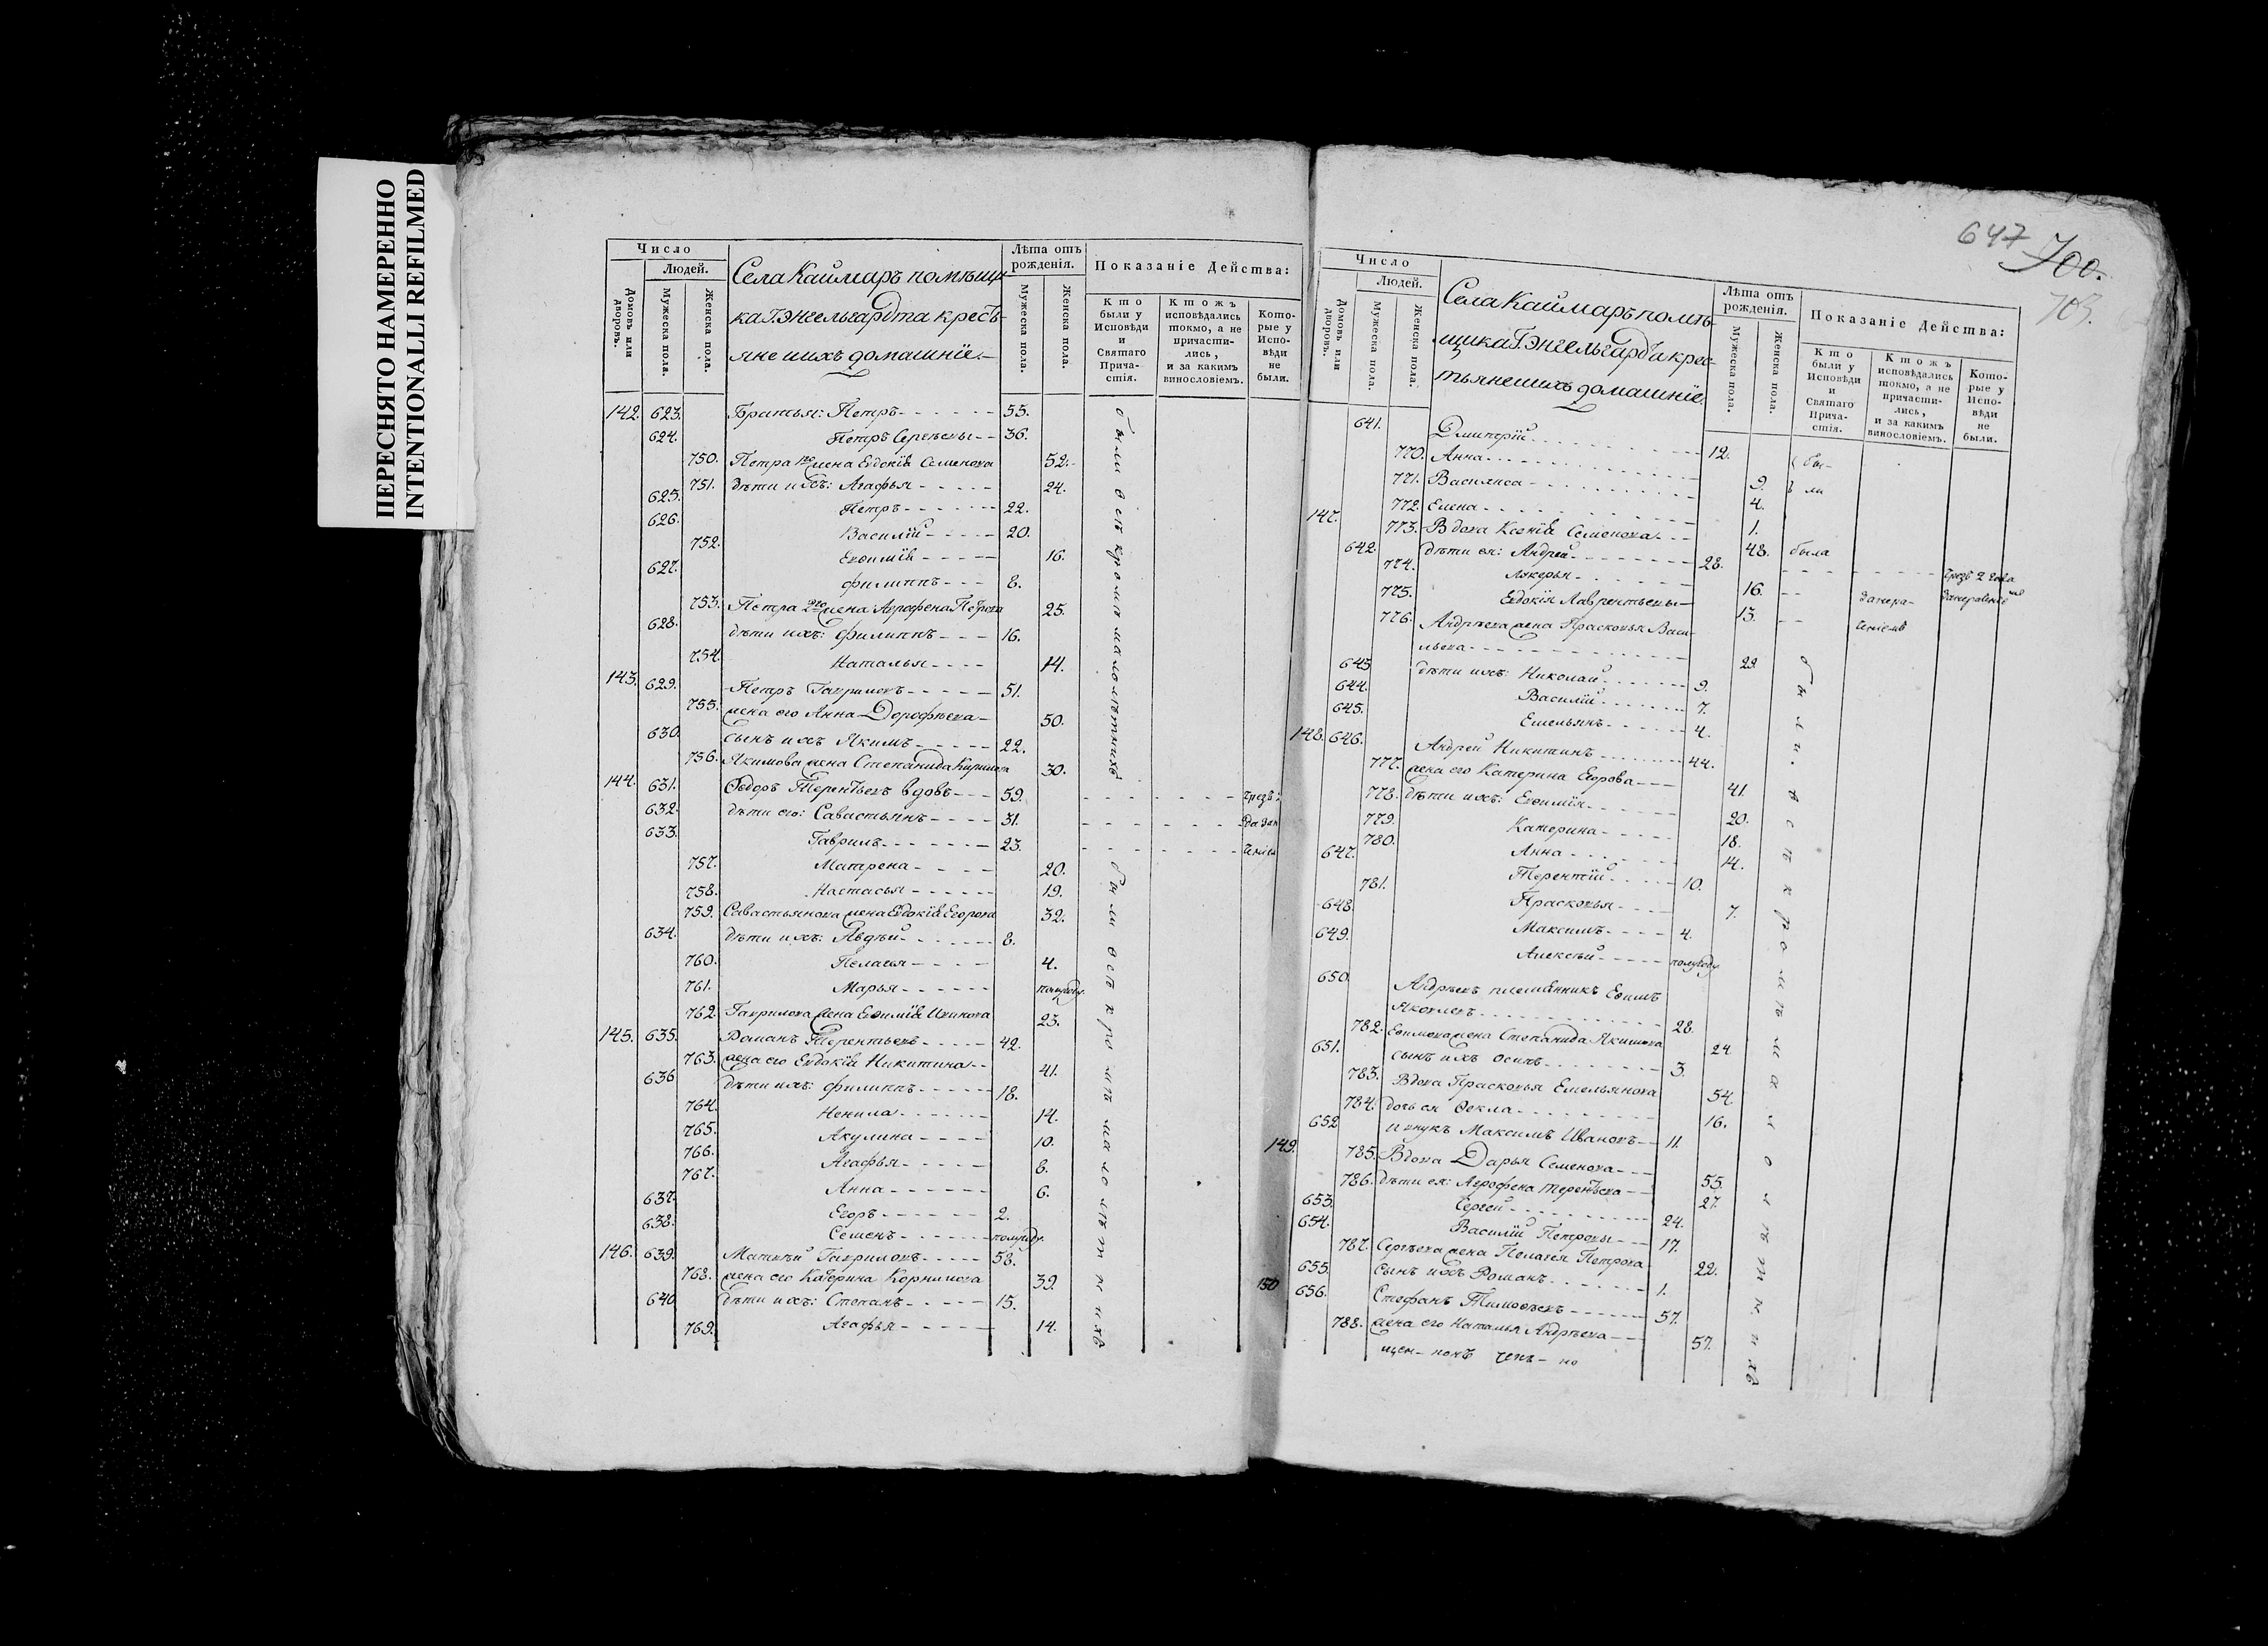 ПЕРЕСНЯТО НАМЕРЕННО
INTENTIONALLI REFILMED
Число
Людей.
Домовъ или дворовъ.
Мужеска пола.
Женска пола.
Села Каймаръ помѣщи-
ка Г. Энгельгардта кресть-
яне и ихъ домашніе.
Лѣта отъ рожденія.
Мужеска пола.
Женска пола.
Показаніе Действа:
Кто были у Исповѣди и Святаго Прича-стія.
Ктожъ исповѣдались токмо, а не причасти-лись, и за какимъ винословіемъ.
Кото-рые у Испо-вѣди не были.
142. 623. Братья: Петръ 55.
624. Петръ Сергѣевы 36.
750. Петра 1го жена Евдокія Семенова 52.
751. дѣти ихъ: Агафья 24.
625. Петръ 22.
626. Василій 20.
752. Евфимія 16.
627. Филиппъ 8.
753. Петра 2го жена Аграфена Петрова 25.
628. дѣти ихъ: Филиппъ 16.
754. Наталья 14.
143. 629. Петръ Гавриловъ 51.
755. жена его Анна Дорофѣева 50.
630. сынъ ихъ Якимъ 22.
756. Якимова жена Степанида Кирилова 30.
были всѣ кромѣ малолѣтнихъ
144. 631. Ѳедоръ Терентьевъ вдовъ 59. чрезъ 2
632. дѣти его: Савастьянъ 31.
633. Гаврилъ 23.
757. Матрена 20.
758. Настасья 19.
759. Савастьянова жена Евдокія Егорова 32.
634. дѣти ихъ: Авдѣй 8.
760. Пелагья 4.
761. Марья полугоду.
762. Гаврилова жена Евфимія 23.
145. 635. Романъ Терентьевъ 42.
763. жена его Евдокія Никитина 41.
636 дѣти ихъ: Филиппъ 18.
764. Ненила 14.
765. Акулина 10.
766. Агафья 8.
767. Анна 6.
637. Егоръ 2.
638. Семенъ полугоду.
146. 639. Матвѣй Гавриловъ 58.
768. жена его Катерина Корнилова 39.
640 дѣти ихъ: Степанъ 15.
769. Агафья 14.
были всѣ кромѣ малолѣтнихъ
647
700.
703.
Число
Людей.
Домовъ или дворовъ.
Мужеска пола.
Женска пола.
Села Каймаръ помѣ-
щика Г. Энгельгардта крес-
тьяне и ихъ домашніе.
Лѣта отъ рожденія.
Мужеска пола.
Женска пола.
Показаніе Действа:
Кто были у Исповѣди и Святаго Прича-стія.
Ктожъ исповѣдались токмо, а не причасти-лись, и за какимъ винословіемъ.
Кото-рые у Испо-вѣди не были.
641. Димитрій 12.
770. Анна 9. бы-
771. Василиса 4. ли
772. Елена 1.
147. 773. Вдова Ксенія Семенова 48. была
642. дѣти ея: Андрей 28. чрезъ 2 года
774. Лукерья 16.
775. Евдокія Лаврентьевы 13.
776. Андрѣева жена Прасковья Васи-
льева 29.
643 дѣти ихъ: Николай 9.
644. Василій 7.
645. Емельянъ 4.
148. 646. Андрей Никитинъ 44.
777. жена его Катерина Егорова 41.
778. дѣти ихъ: Евфимія 20.
779. Катерина 18.
780. Анна 14.
647. Терентій 10.
781. Прасковья 7.
648. Максимъ 4.
649. Алексѣй полугоду
650. Андрѣевъ племянникъ Ефимъ
Яковлевъ 28.
782. Ефимова жена Степанида Якимова 24
651. сынъ ихъ Осипъ 3.
783. Вдова Прасковья Емельянова 54.
784. дочь ея Ѳекла 16.
652 и внукъ Максимъ Ивановъ 11.
149. 785. Вдова Дарья Семенова 55.
786. дѣти ея: Аграфена Терентьева 27.
653. Сергей 24.
654. Василій Петровы 17.
787. Сергѣева жена Пелагея Петрова 22.
655. сынъ ихъ Романъ 1.
150 656. Стефанъ Тимоѳѣевъ 57.
788. жена его Наталья Андрѣева 57.
были всѣ кромѣ малолѣтнихъ